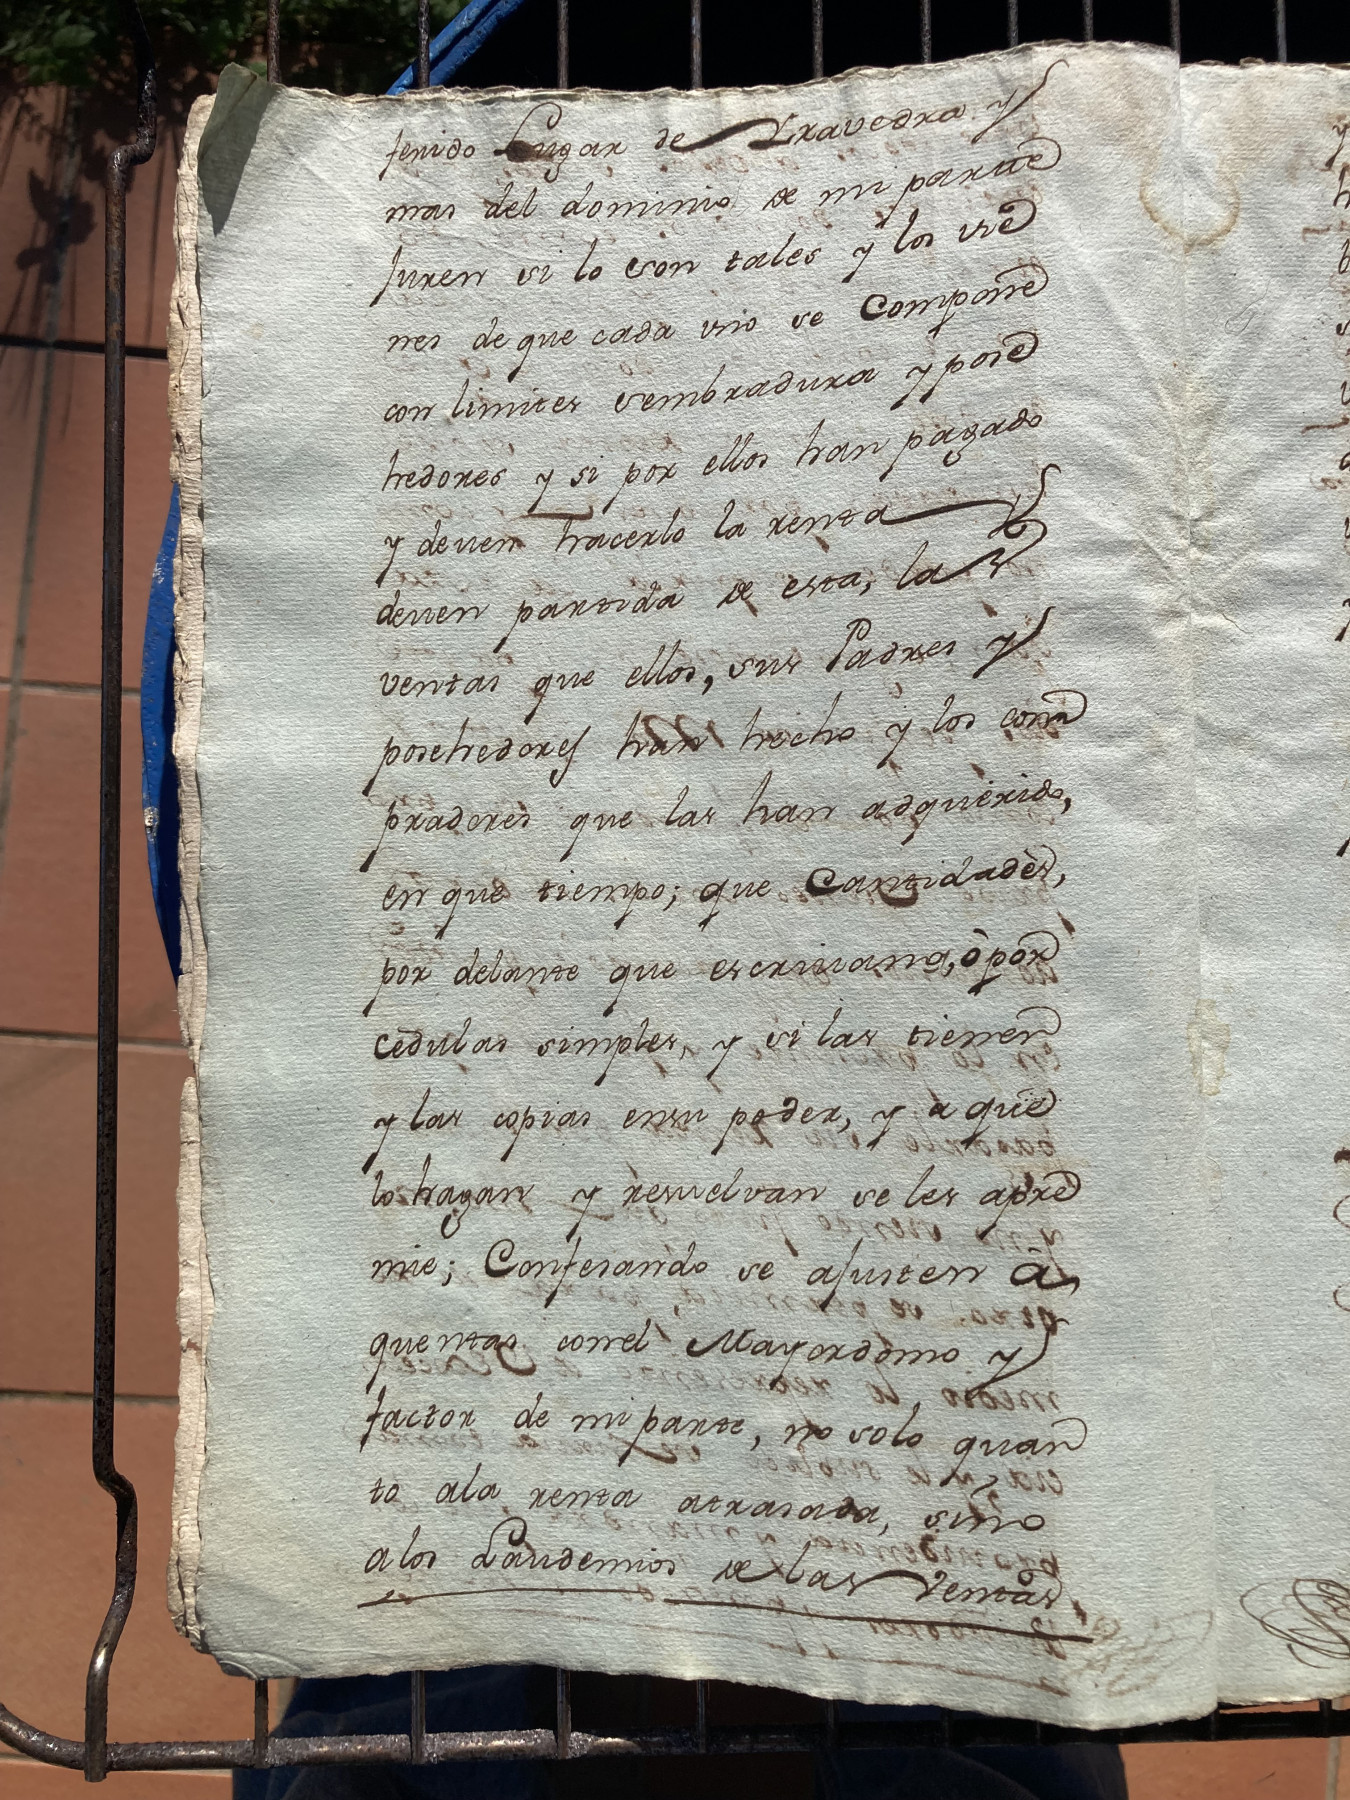 ferido Lugar de Travedra y
mas del dominio de mi parte
juren si lo son tales y los vie
nes de que cada uno se Compone
con limites sembradura y pose
hedores y si por ellos han pagado
y deven hacerlo la renta
deven partida de esta, las
ventas que ellos, sus Padres y
posehedores han hecho y los com
pradores que las han adquerido,
en que tiempo; que Cantidades,
por delante que escrivano, ò por
cedulas simples, y si las tienen
y las copias en su poder, y a que
lo hagan y resuelvan se les apre
mie; Confesando se ajusten â
quentas con el Mayordomo y
factor de mi parte, no solo quan
to a la renta atrasada, sino
a los Laudemios de las Ventas